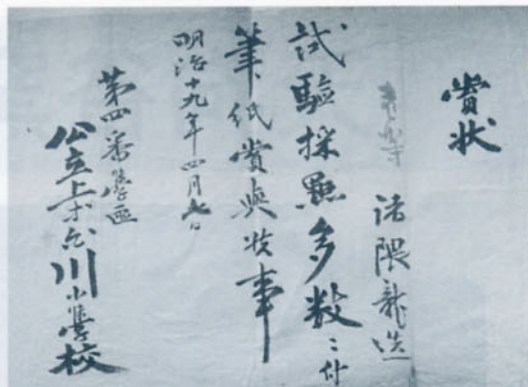 賞状
諸隈龍造
試驗採點多数ニ付
筆紙賞與候事
明治十九年四月 日
第四番學區
公立上 川小學校